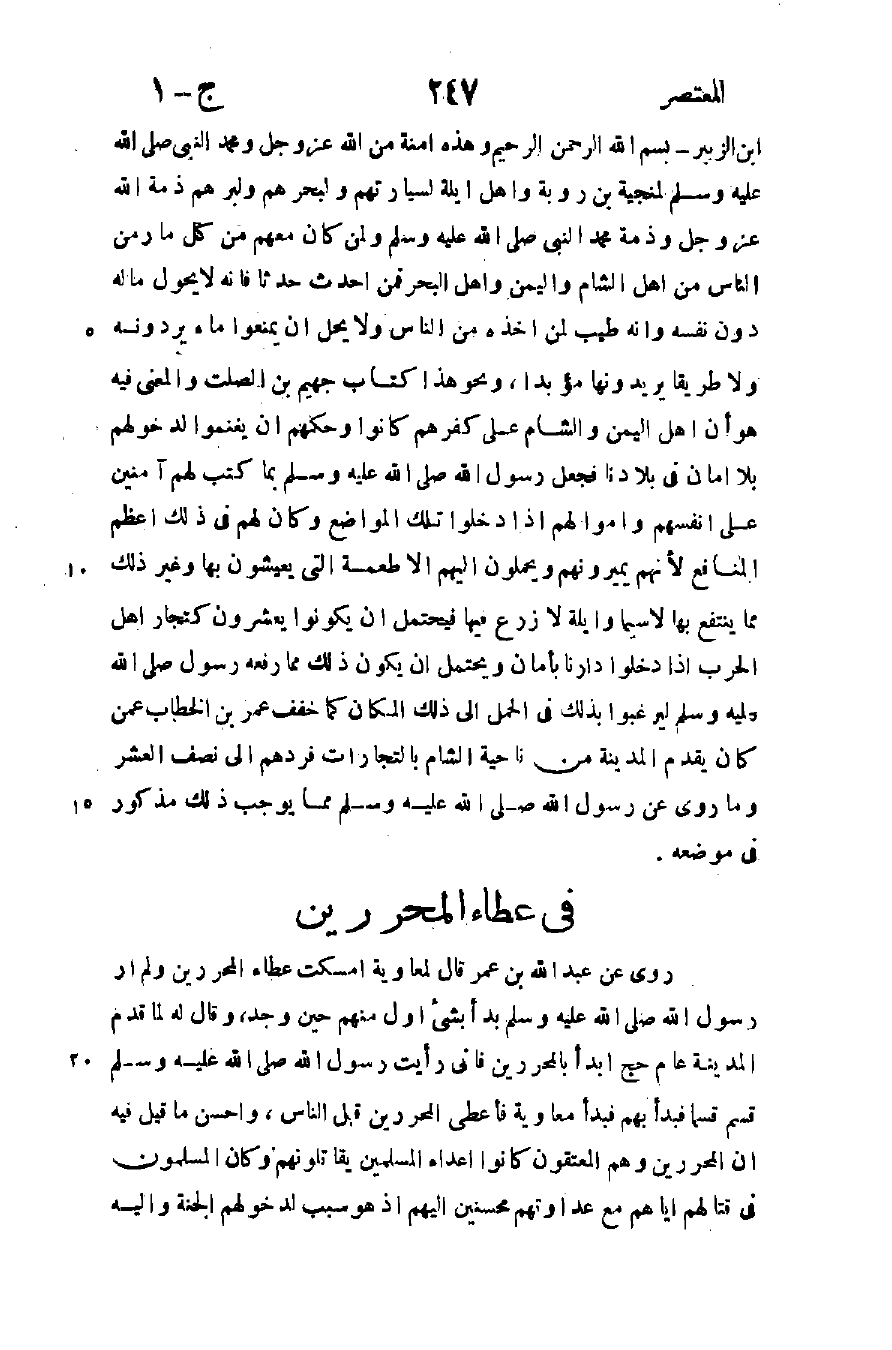 المعتصر ٢٤٧ ج - ١
ابن الزبير - بسم الله الرحمن الرحيم وهذه امنة من الله عز وجل ومحمد النبي صلى الله
عليه وسلم لمنجية بن روبة واهل ايلة لسيارتهم ولبحرهم ولبرهم ذمة الله
عز وجل وذمة محمد النبي صلى الله عليه وسلم ولمن كان معهم من كل مار من
الناس من اهل الشام واليمن واهل البحر فمن احدث حدثا فانه لا يحول ماله
دون نفسه وانه طيب لمن اخذه من الناس ولا يحل ان يمنعوا ماء يردونه ٥
ولا طريقا يريدونها مؤبدا، ونحو هذا كتاب جهيم بن الصلت والمعنى فيه
هو أن اهل اليمن والشام على كفرهم كانوا وحكمهم ان يغنموا لدخولهم
بلا امان في بلادنا فجعل رسول الله صلى الله عليه وسلم بما كتب لهم آمنين
على انفسهم واموالهم اذا دخلوا تلك المواضع وكان لهم في ذلك اعظم
المنافع لأنهم يميرونهم ويحملون اليهم الاطعمة التي يعيشون بها وغير ذلك ١٠
مما ينتفع بها لاسيما وايلة لا زرع فيها فيحتمل ان يكونوا يعشرون كتجار اهل
الحرب اذا دخلوا دارنا بأمان ويحتمل ان يكون ذلك مما رفعه رسول صلى الله
عليه وسلم ليرغبوا بذلك في الحمل الى ذلك المكان كما خفف عمر بن الخطاب عمن
كان يقدم المدينة من ناحية الشام بالتجارات فردهم الى نصف العشر
وما روى عن رسول الله صلى الله عليه وسلم مما يوجب ذلك مذكور ١٥
في موضعه .
في عطاء المحررين
روى عن عبد الله بن عمر قال لمعاوية امسكت عطاء المحررين ولم ار
رسول الله صلى الله عليه وسلم بدأ بشئ اول منهم حين وجد، وقال له لما قدم
المدينة عام حج ابدأ بالمحررين فانى رأيت رسول الله صلى الله عليه وسلم ٢٠
قسم قسما فبدأ بهم فبدأ معاوية فأعطى المحررين قبل الناس، واحسن ما قيل فيه
ان المحررين وهم المعتقون كانوا اعداء المسلمين يقاتلونهم وكان المسلمون
في قتالهم اياهم مع عداوتهم محسنين اليهم اذ هو سبب لدخولهم الجنة واليه